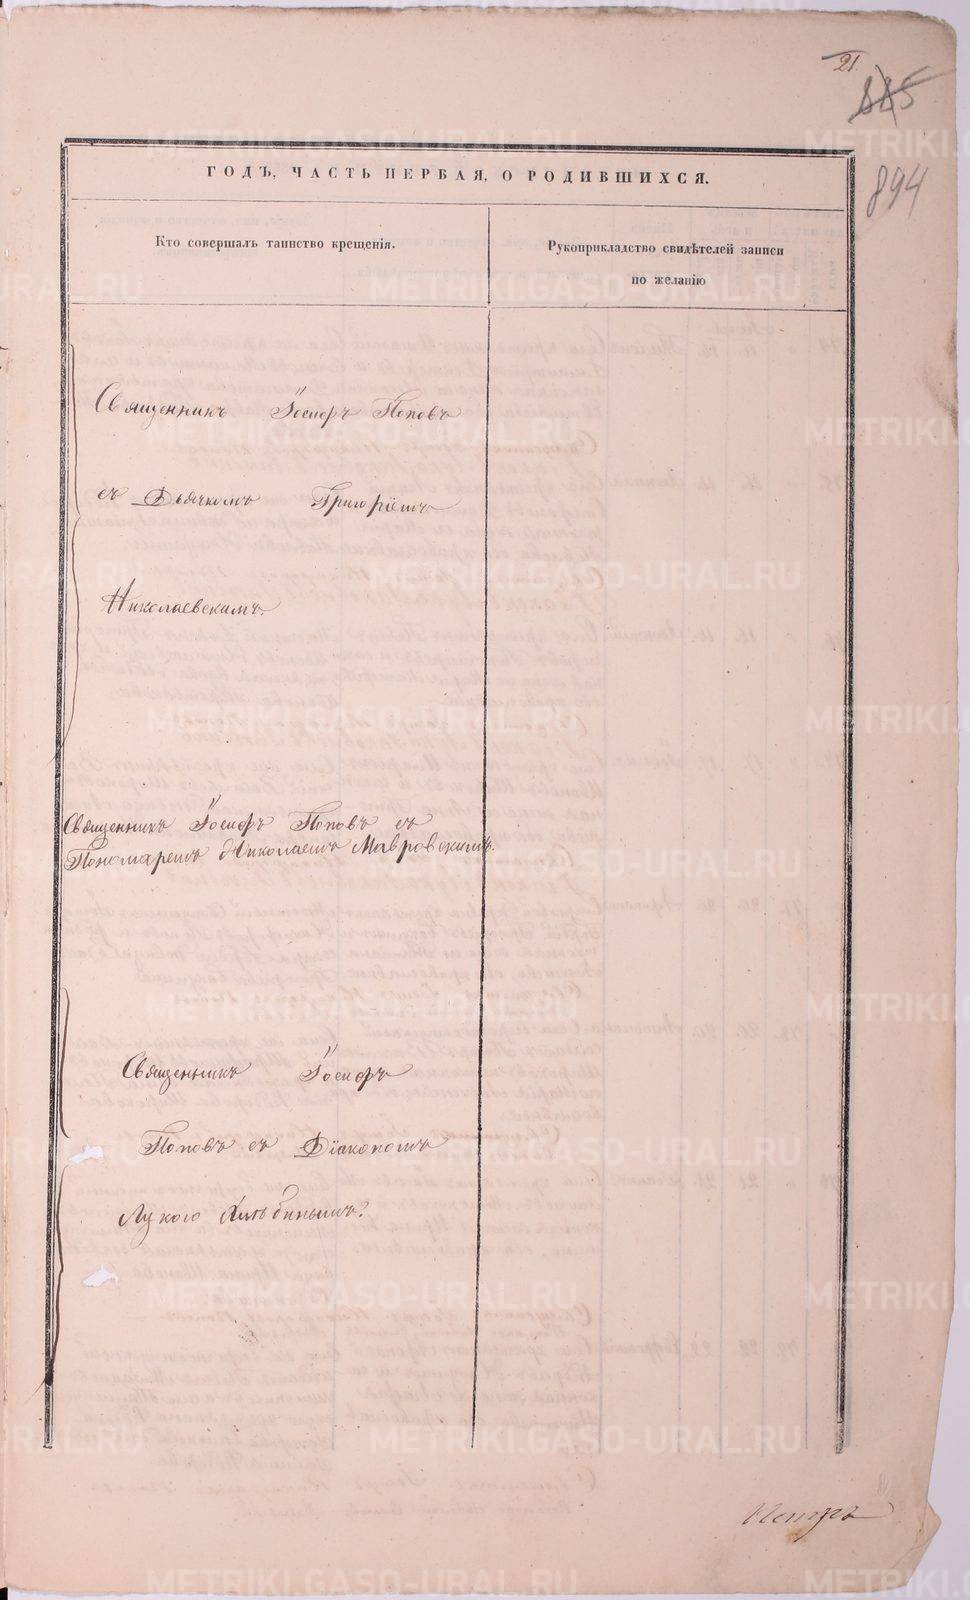 21.
885
894
ГОДЪ, ЧАСТЬ ПЕРВАЯ, О РОДИВШИХСЯ.
Кто совершалъ таинство крещенія.
Рукоприкладство свидѣтелей записи
по желанію
Священникъ Іосифъ Поповъ
съ Дьячкомъ Григоріемъ
Николаевскимъ.
Священникъ Іосифъ Поповъ съ
Пономаремъ Николаемъ Мавровскимъ.
Священникъ Іосифъ
Поповъ съ Діакономъ
Лукою Хлѣбинымъ.
METRIKI.GASO-URAL.RU